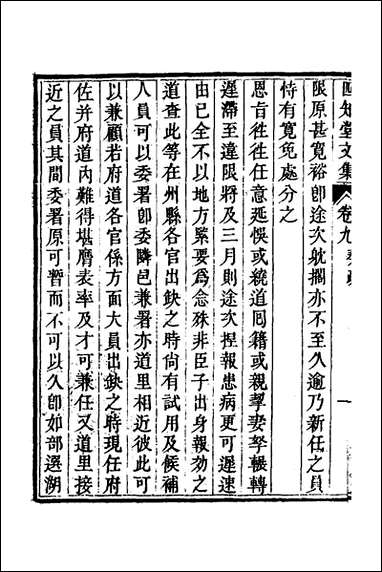 四知堂文集 卷九 奏疏 一
限原甚寬裕卽途次躭擱亦不至久逾乃新任之員
恃有寬免處分之
恩旨徃徃任意延悞或繞道囘籍或親挈妻孥輾轉
遲滯至違限將及三月則途次捏報患病更可遲速
由已全不以地方緊要爲念殊非臣子出身報効之
道查此等在州縣各官出缺之時尚有試用及候補
人員可以委署卽委隣邑兼署亦道里相近彼此可
以兼顧若府道各官係方面大員出缺之時現任府
佐并府道內難得堪膺表率及才可兼任又道里接
近之員其間委署原可暫而不可以久卽如部選湖